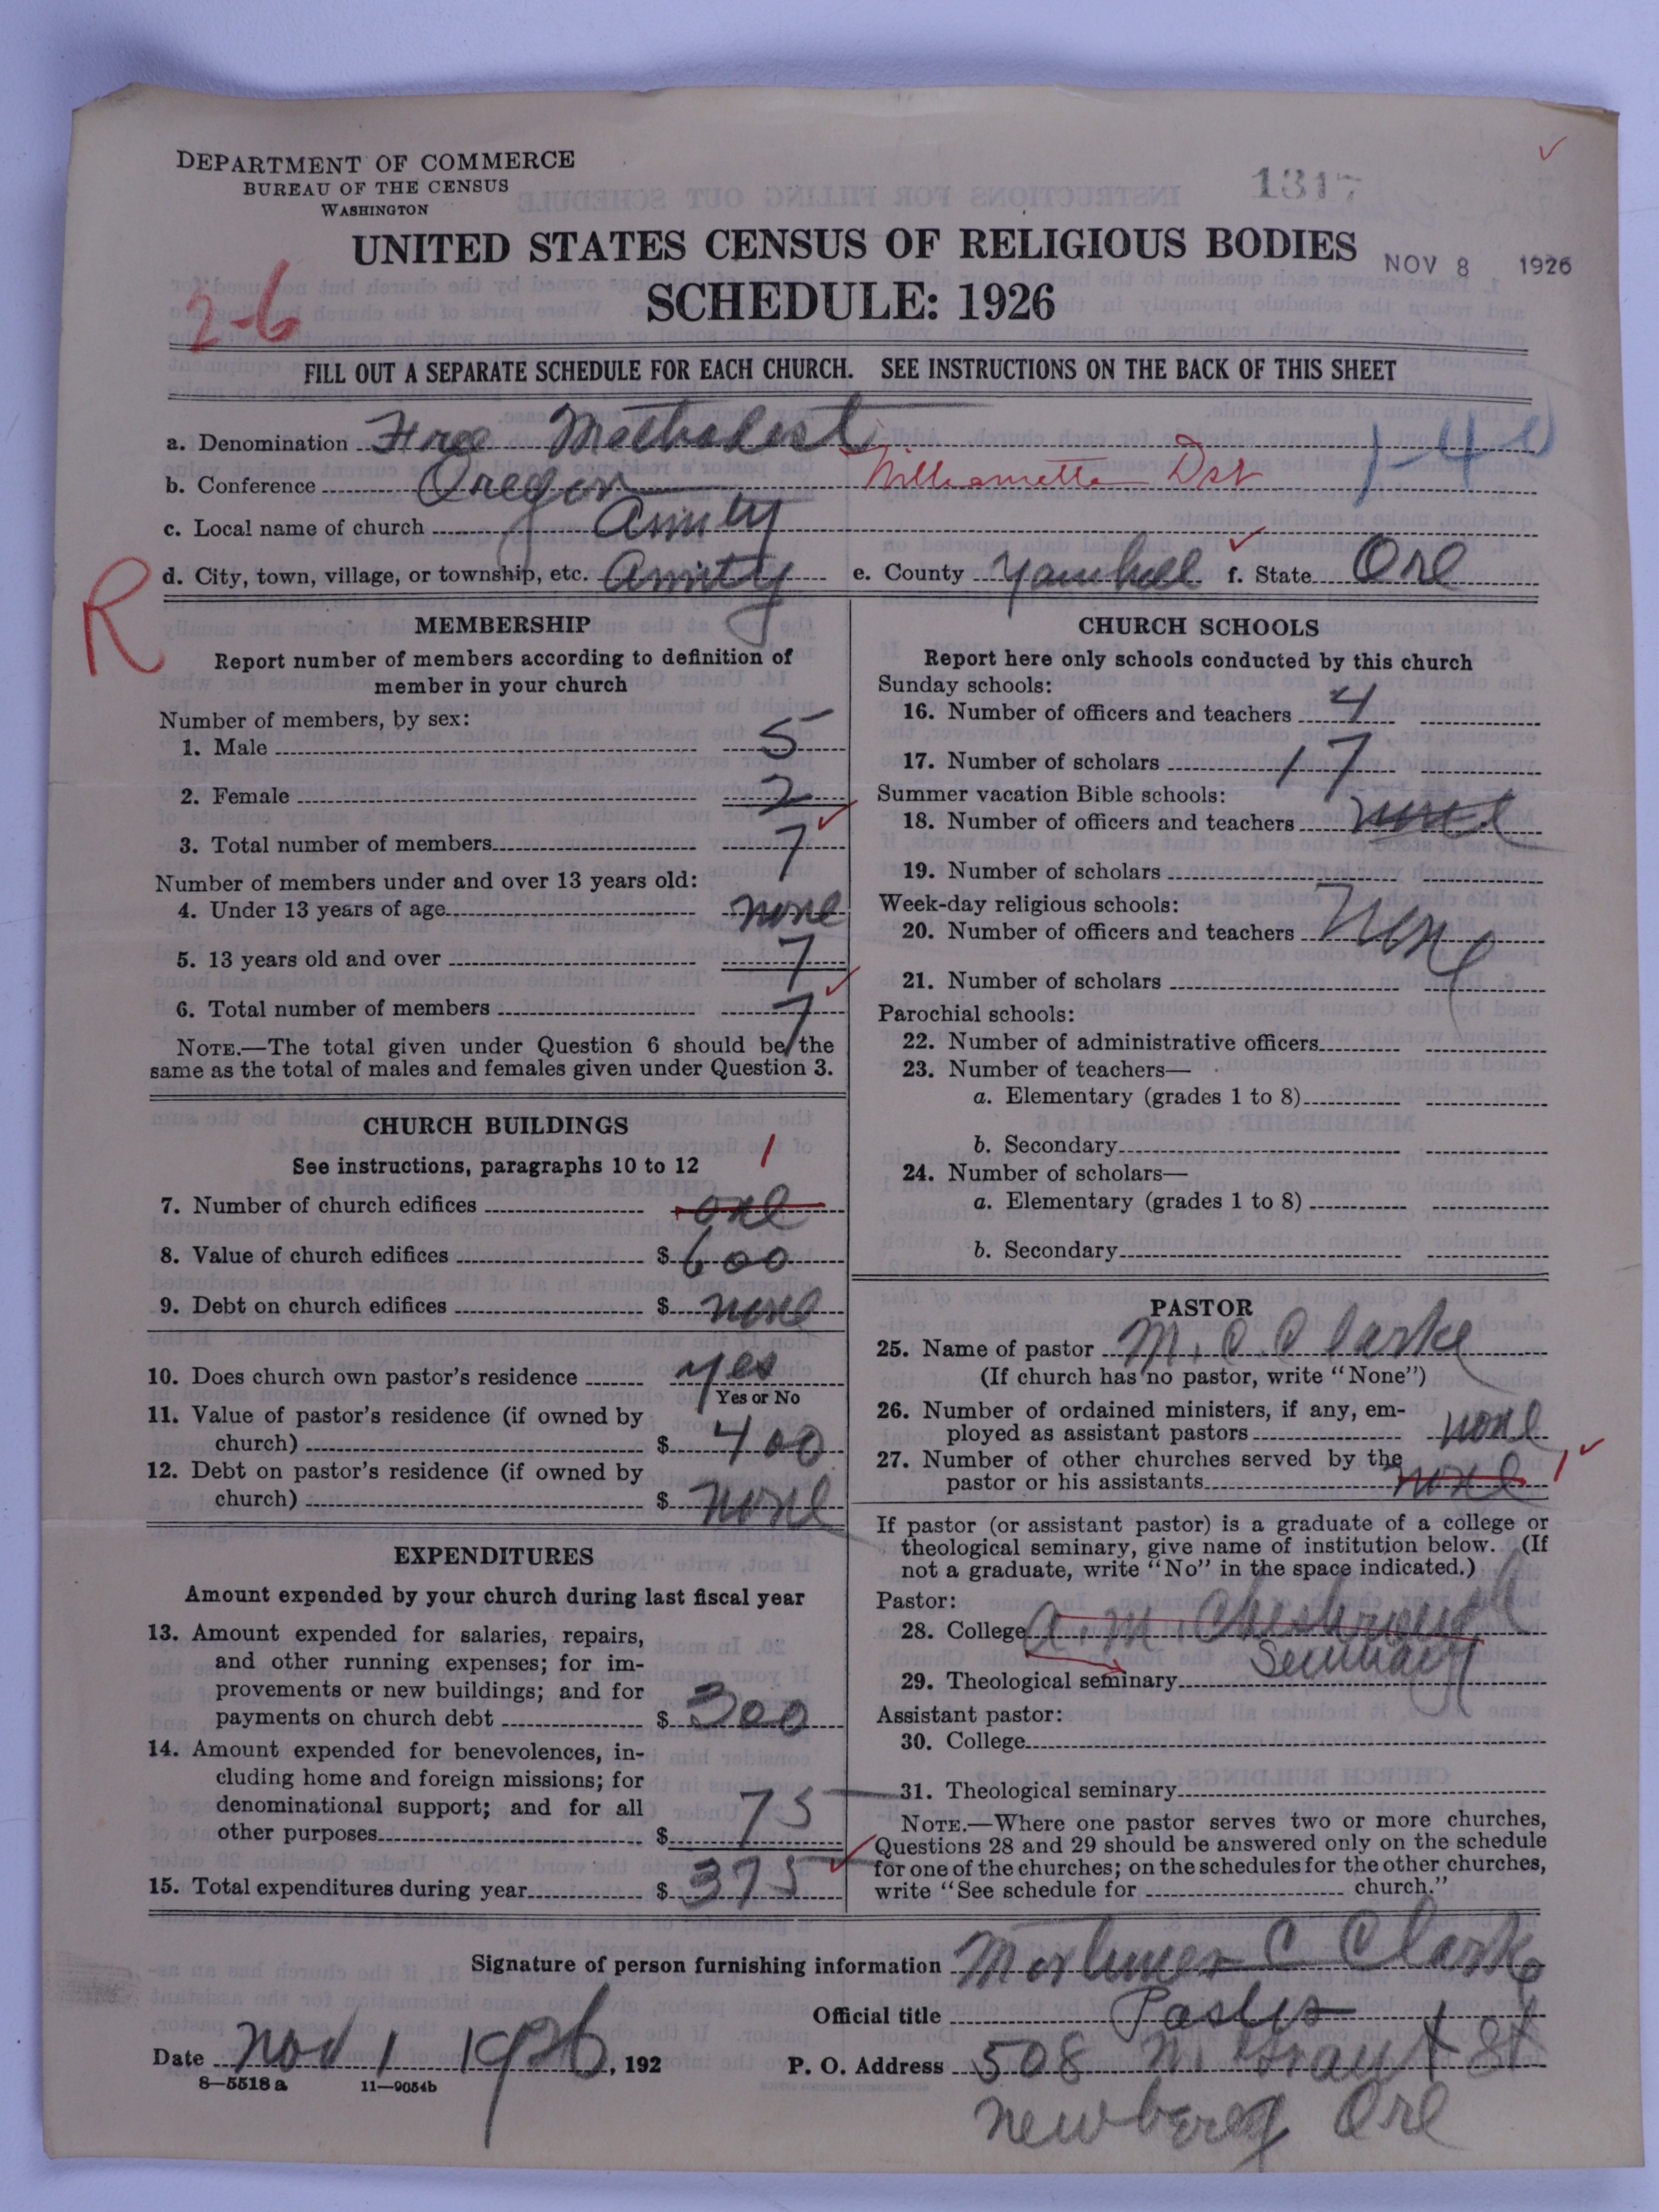 DEPARTMENT OF COMMERCE
BUREAU OF THE CENSUS
WASHINGTON
1317
UNITED STATES CENSUS OF RELIGIOUS BODIES
NOV 8 1926
SCHEDULE: 1926
2-6
FILL OUT A SEPARATE SCHEDULE FOR EACH CHURCH. SEE INSTRUCTIONS ON THE BACK OF THIS SHEET
a. Denomination Free Methodist
b. Conference Oregon Willamette Dst
c. Local name of church Amity
d. City, town, village, or township, etc. Amity e. County Yamhill f. State Ore
R
MEMBERSHIP
Report number of members according to definition of
member in your church
Number of members, by sex:
1. Male 5
2. Female 2
3. Total number of members 7
Number of members under and over 13 years old:
4. Under 13 years of age none
5. 13 years old and over 7
6. Total number of members 7
NOTE.—The total given under Question 6 should be the
same as the total of males and females given under Question 3.
CHURCH BUILDINGS
See instructions, paragraphs 10 to 12
1
7. Number of church edifices one
8. Value of church edifices $ 600
9. Debt on church edifices $ none
10. Does church own pastor's residence yes
Yes or No
11. Value of pastor's residence (if owned by
church) $ 400
12. Debt on pastor's residence (if owned by
church) $ none
EXPENDITURES
Amount expended by your church during last fiscal year
13. Amount expended for salaries, repairs,
and other running expenses; for im-
provements or new buildings; and for
payments on church debt $ 300
14. Amount expended for benevolences, in-
cluding home and foreign missions; for
denominational support; and for all
other purposes $ 75
15. Total expenditures during year $ 375
CHURCH SCHOOLS
Report here only schools conducted by this church
Sunday schools:
16. Number of officers and teachers 4
17. Number of scholars 17
Summer vacation Bible schools:
18. Number of officers and teachers none
19. Number of scholars
Week-day religious schools:
20. Number of officers and teachers None
21. Number of scholars
Parochial schools:
22. Number of administrative officers
23. Number of teachers—
a. Elementary (grades 1 to 8)
b. Secondary
24. Number of scholars—
a. Elementary (grades 1 to 8)
b. Secondary
PASTOR
25. Name of pastor M. C. Clarke
(If church has no pastor, write "None")
26. Number of ordained ministers, if any, em-
ployed as assistant pastors none
27. Number of other churches served by the
pastor or his assistants none 1
If pastor (or assistant pastor) is a graduate of a college or
theological seminary, give name of institution below. (If
not a graduate, write "No" in the space indicated.)
Pastor:
28. College A. M. Chesbrough
Seminary
29. Theological seminary
Assistant pastor:
30. College
31. Theological seminary
NOTE.—Where one pastor serves two or more churches,
Questions 28 and 29 should be answered only on the schedule
for one of the churches; on the schedules for the other churches,
write "See schedule for church."
Signature of person furnishing information Mortimer C Clarke
Official title Pastor
Date Nov 1 1926, 192 P. O. Address 508 N. Grant St
8—5518 a 11—9054b
Newberg Ore